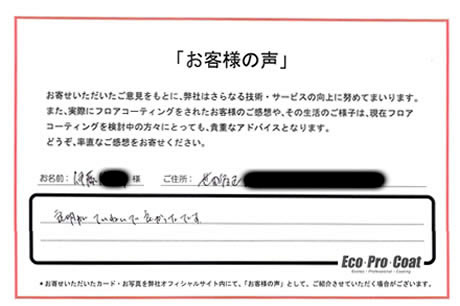 「お客様の声」
お寄せいただいたご意見をもとに、弊社はさらなる技術・サービスの向上に努めてまいります。
また、実際にフロアコーティングをされたお客様のご感想や、その生活のご様子は、現在フロア
コーティングを検討中の方々にとっても、貴重なアドバイスとなります。
どうぞ、率直なご感想をお寄せください。
お名前： 様 ご住所：
説明がていねいで良かったです
Eco・Pro・Coat
Ecolex・Professional・Coating
＊お寄せいただいたカード・お写真を弊社オフィシャルサイト内にて、「お客様の声」として、ご紹介させていただく場合がございます。